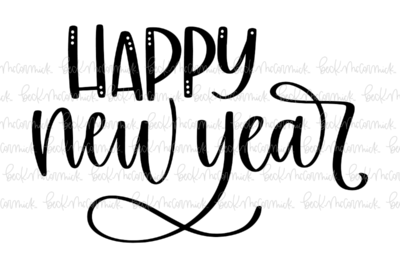 HAPPY
new year